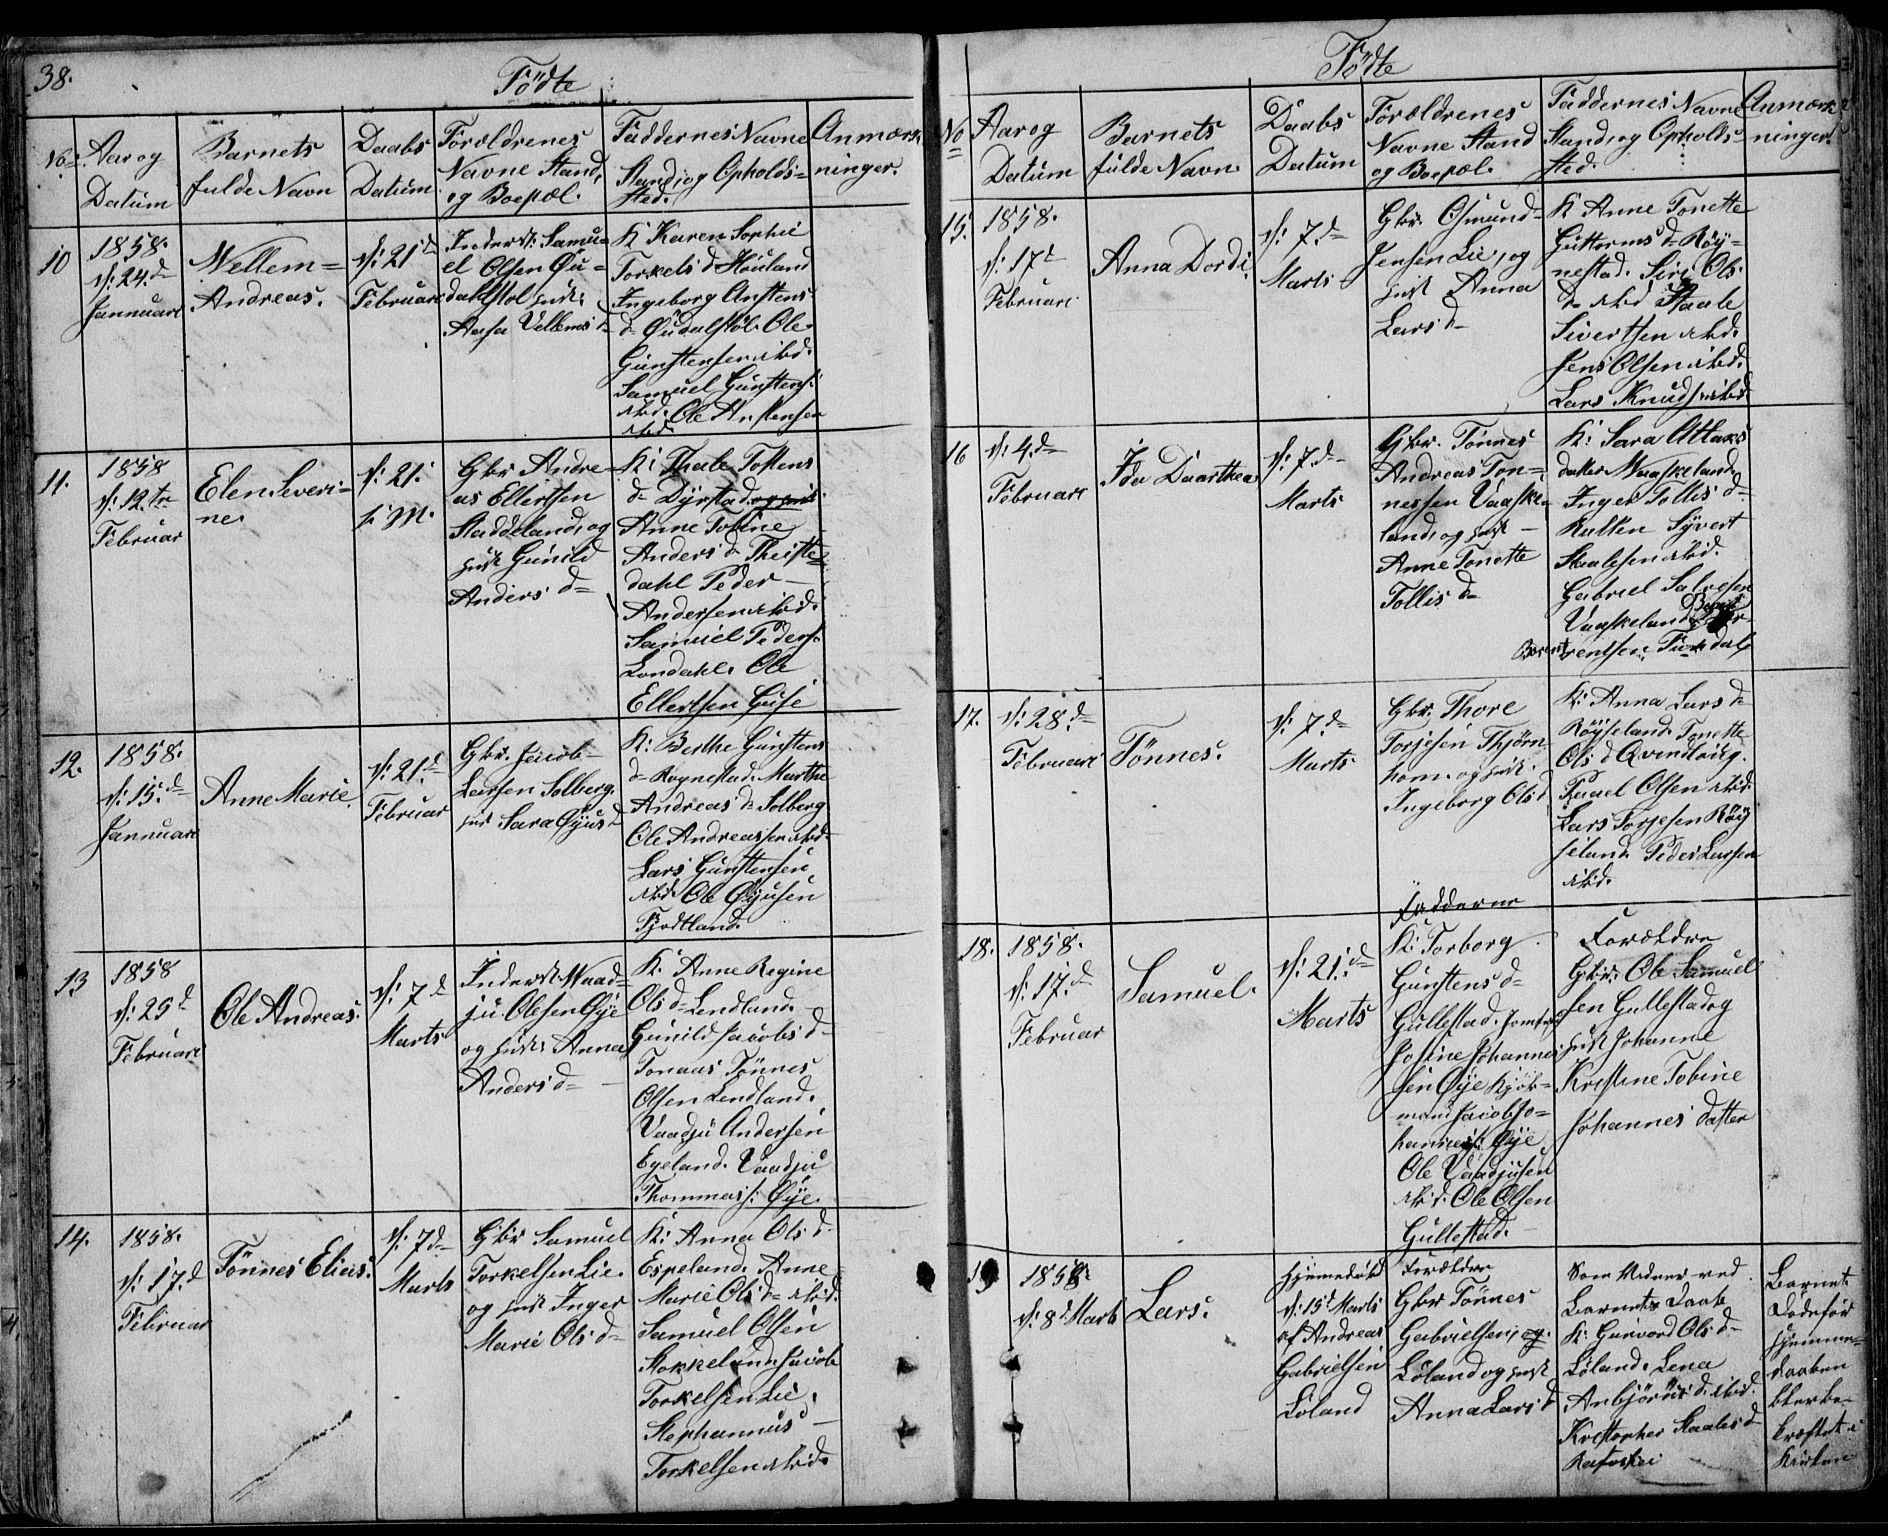 38.
Födte
No. Aar og Datum
Barnets fulde Navn
Daabs Datum
Forældrenes Navne Stand, og Boepæl.
Faddernes Navne Stand, og Opholds=sted.
Anmærkninger.
10
1858.
d: 24.d
Jannuari
Wellem=
Andreas.
d: 21d
Februari
Inderst: Samu=
el Olsen Øu=
dahlstøl
Aasa Vellems d
K Karen Sophie
Torkels d Houland
Ingeborg Anstens
d Øudalstøl. Ole
Gunstensen
Samuel Gunstens:
Ole Anstensen
11.
1858
d: 12.te
Februar
Elen Severi=
ne
d: 21.
s: M.
Gbr Andre=
as Ellertsen
Staddeland, og
Gunild
Anders d
K: Thale Tollens
d Dyrstad
Anne Tobine
Anders d Theiste=
dahl Peder
Andersen
Samuel Peders.
Londahl. Ole
Ellertsen
12.
1858.
d: 15.d
Jannuari
Anne Marie
d: 21.d
Februar
Gbr. Jacob
Larsen Solberg.
Sara Øyus d
K: Berthe Gunstens
d Røynestad. Marthe
Andreas d Solberg
Ole Andreassen
Lars Gunstensen
Ole Øyusen
Fjodtland.
13
1858
d: 25d
Februari
Ole Andreas.
d: 7d
Marts
Inderst Waad=
ju Olesen Øye
og Anna
Anders d
K: Anne Regine
Ols d Lendland.
Gunild Jacobs d
Tonaas Tönnes
Olsen Lendland.
Vaadju Andersen
Egeland. Vaadju
Thommass: Øye.
14.
1858.
d: 17.d
Februar
Tönnes Elias.
d: 7d
Marts
Gbr Samuel
Torkelsen Lie.
og Inger
Marie Ols d
K: Anna Ols d.
Espeland. Anne
Marie Ols d
Samuel Olsen
Stokkeland Jacob
Torkelsen Lie.
Stephannus
Torkelsen
Födte
No Aar og Datum
Barnets fulde Navn
Daabs Datum
Forældrenes Navne Stand og Boepæl.
Faddernes Navne Stand, og Opholds=sted.
Anmærkninger.
15.
1858.
d: 17d
Februari
Anna Dordi.
d: 7.d
Marts
Gbr. Osmund
Jensen Lie, og
Anna
Lars d
K Anne Tonette
Guttorms d Röy=
nestad. Siri Ols
d Staale
Sivertsen
Jens Olsen
Lars Knuds
16
d: 4.d
Februari
Ida Daarthea
d: 7.d
Marts
Gbr. Tönnes
Andreas Ton=
nessen Vaaske=
land, og
Anne Tonette
Tollis d
K: Sara Attaks
datter Waaskeland
Inger Tollis d
Sÿvert
Staalesen
Gabriel Salvesen
Vaaskeland
17.
d: 28.d
Februari
Tönnes.
d: 7.d
Marts
Gbr. Thore
Torjesen Thjörn
hom. og
Ingeborg Ols d
K: Anna Lars d
Röyseland. Tonette
Ols d Qvendlaug.
Olsen
Lars Torjesen Röy
seland. Peder Larsen
18.
1858.
d: 17.d
Februar
Samuel.
d: 21.d
Marts
Fadderne
K: Torborg
Gunstens d
Gullestad. Jomfru
Josine Johannes
sen Øye Kjøb=
mand Jacob Jo=
hannes: Øye
Ole Vaadjusen
Ole Olsen
Gullestad.
Forældre
Gbr: Ole Samuel
sen Gullestad og
Johanne
Kristine Tobine
Johannes datter
19
1858.
d: 8d Marts
Lars.
Hjemedöbt
d: 15d Marts
af Andreas
Gabrielsen
Löland
Forældre
Gbr Tönnes
Gabrielsen, og.
Löland og
Anna Lars d
Som Vidner ved
Barnets Daab
K: Gurvord Ols d
Löland. Lena
Anbjörns d
Kristopher Staales d
Barnet
Döde för
Hjemme=
daaben
blev be=
kræftet i
Kirken